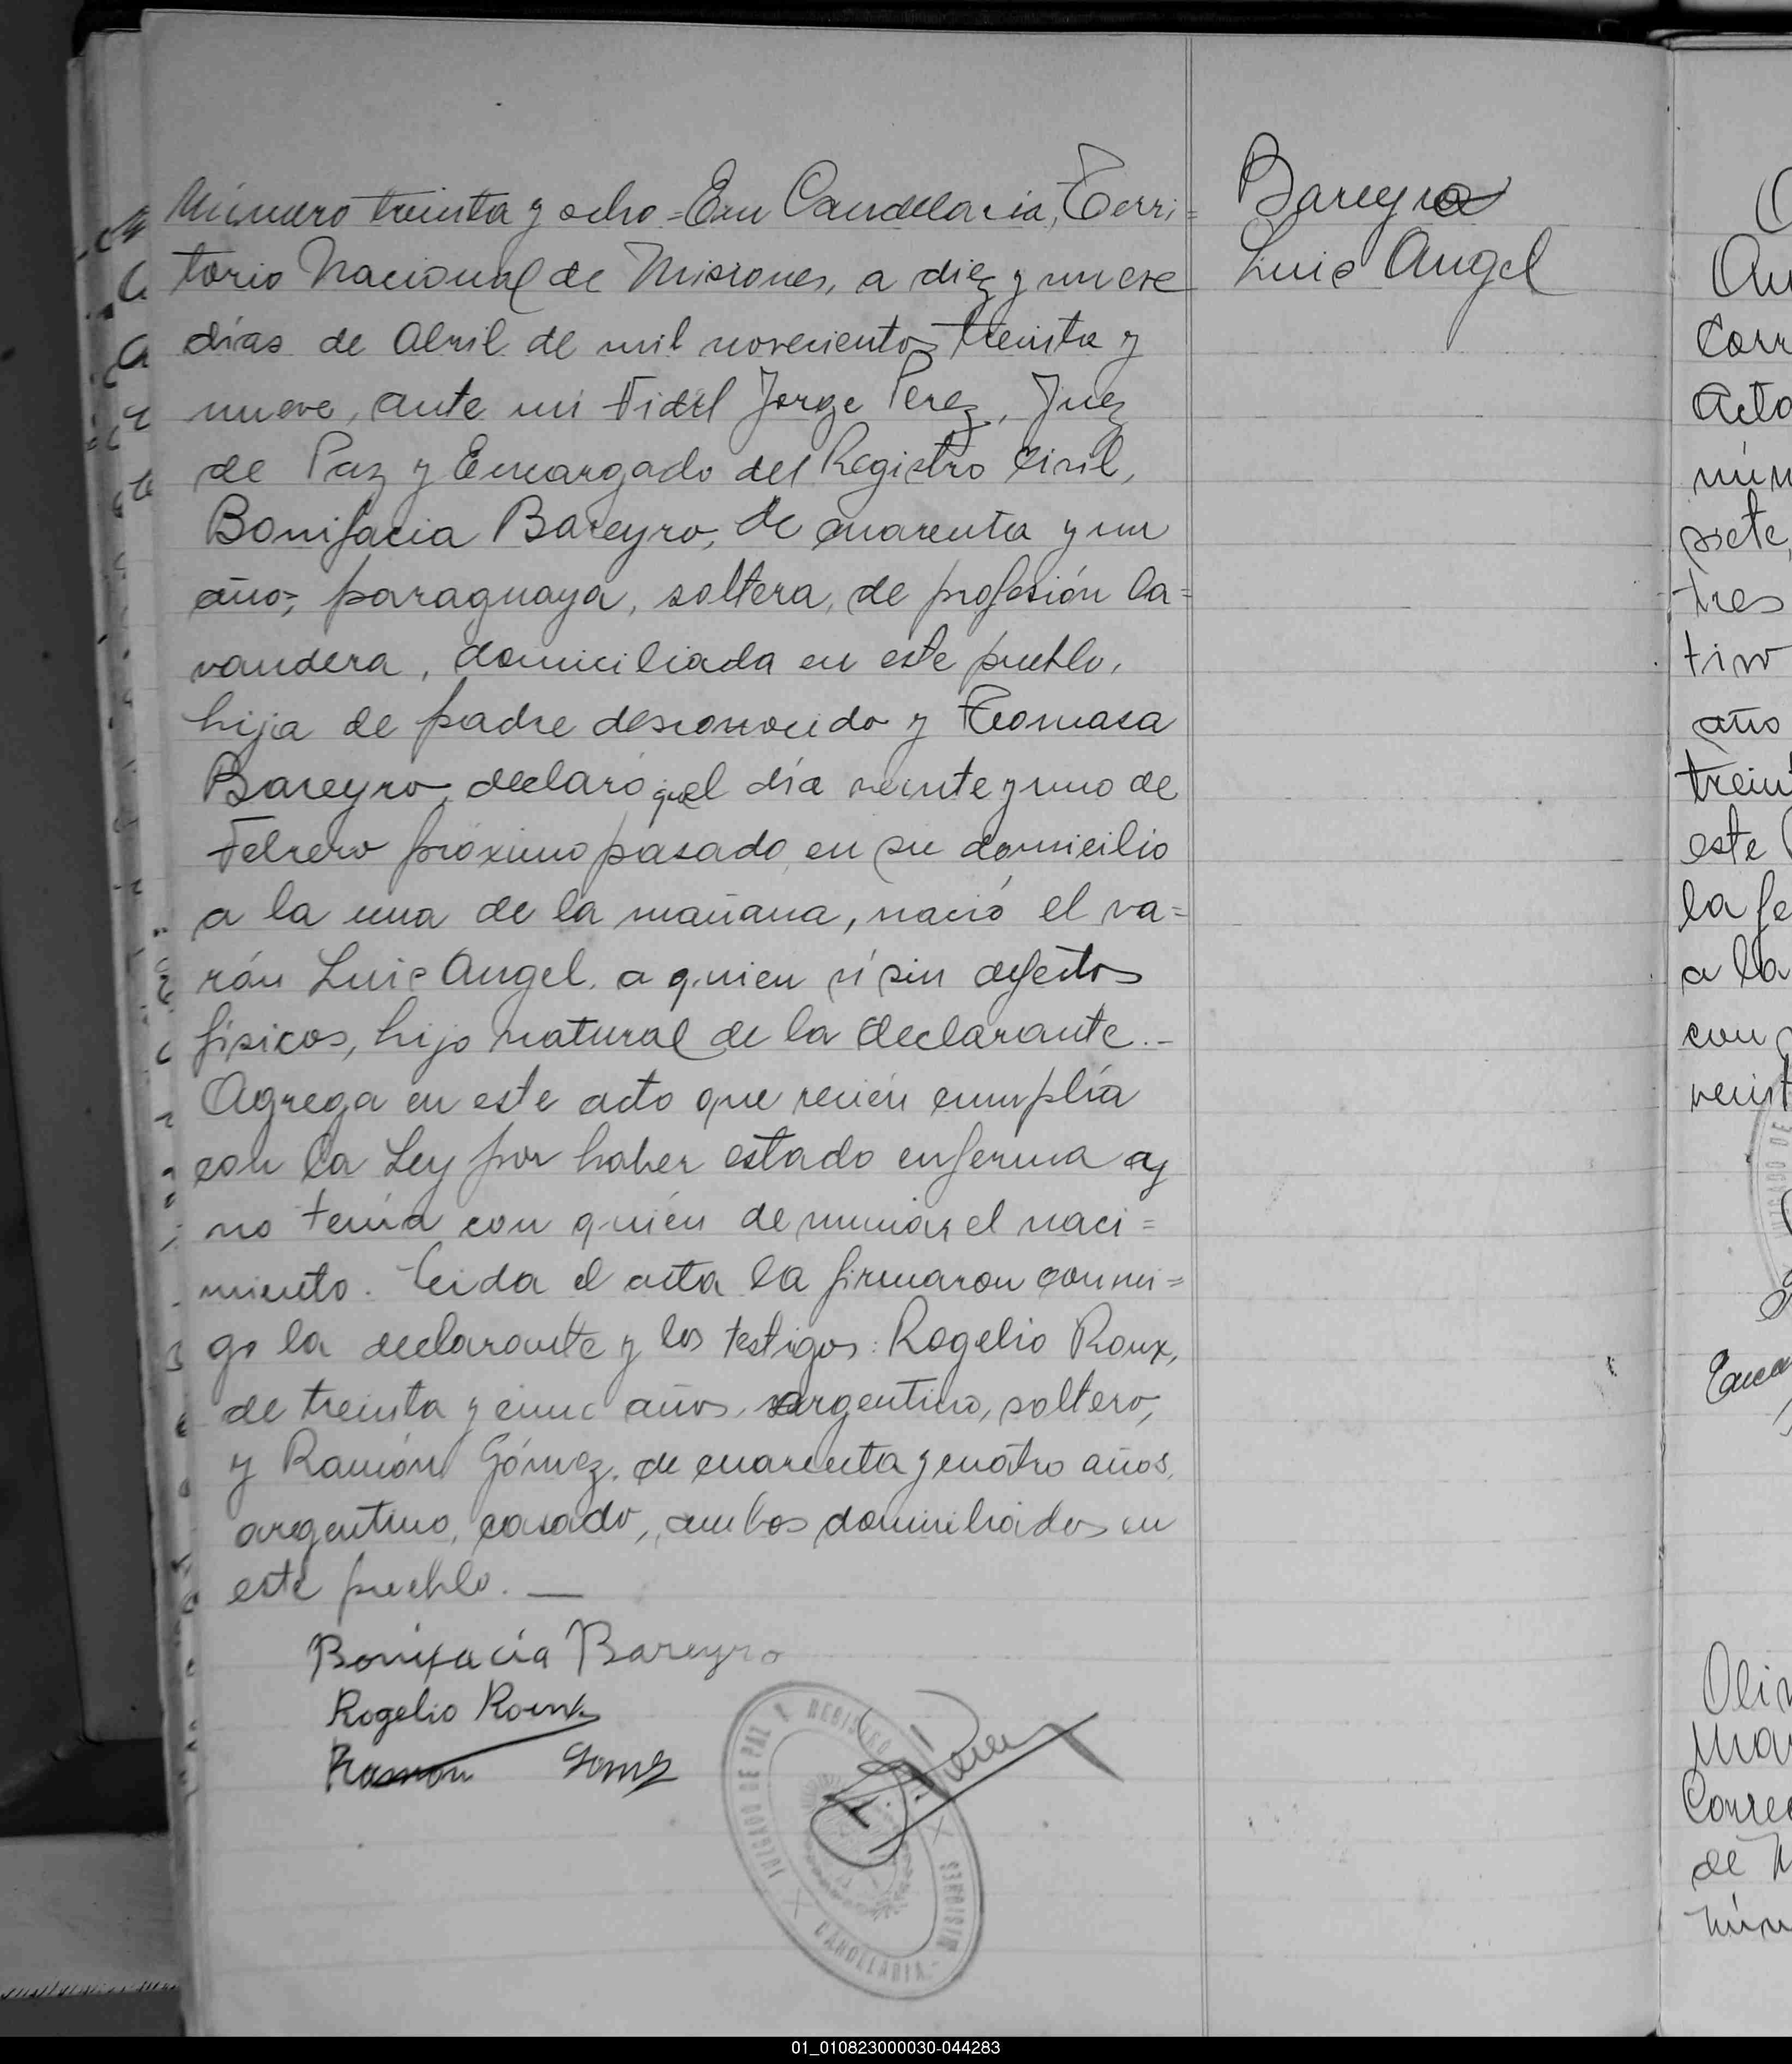 Bareyro
Luis Angel
Número treinta y ocho = En Candelaria, Terri=
torio Nacional de Misiones, a diez y nueve
días de Abril de mil novecientos treinta y
nueve, ante mi Fidel Jorge Perez, Juez
de Paz y Encargado del Registro Civil,
Bonifacia Bareyro, de cuarenta y un
años, paraguaya, soltera, de profesión la=
vandera, domiciliada en este pueblo,
hija de padre desconocido y Tomasa
Bareyro, declaró que el día veinte y uno de
Febrero próximo pasado, en su domicilio
a la una de la mañana, nació el va=
rón Luis Angel, a quien vi sin defectos
físicos, hijo natural de la declarante.-
Agrega en este acto que recién cumplía
con la Ley por haber estado enferma y
no tenía con quién denunciar el naci=
miento. Leida el acta la firmaron conmi=
go la declarante y los testigos: Rogelio Roux,
de treinta y cinco años, argentino, soltero,
y Ramón Gómez, de cuarenta y cuatro años,
argentino, casado, ambos domiciliados en
este pueblo. —
Bonifacia Bareyro
Rogelio Roux
Ramon Gomez
F. J. Perez
JUZGADO DE PAZ Y REGISTRO
CANDELARIA - MISIONES
Corr
Acta
siete,
tres
año
este
la fe
a la
con
01_010823000030-044283